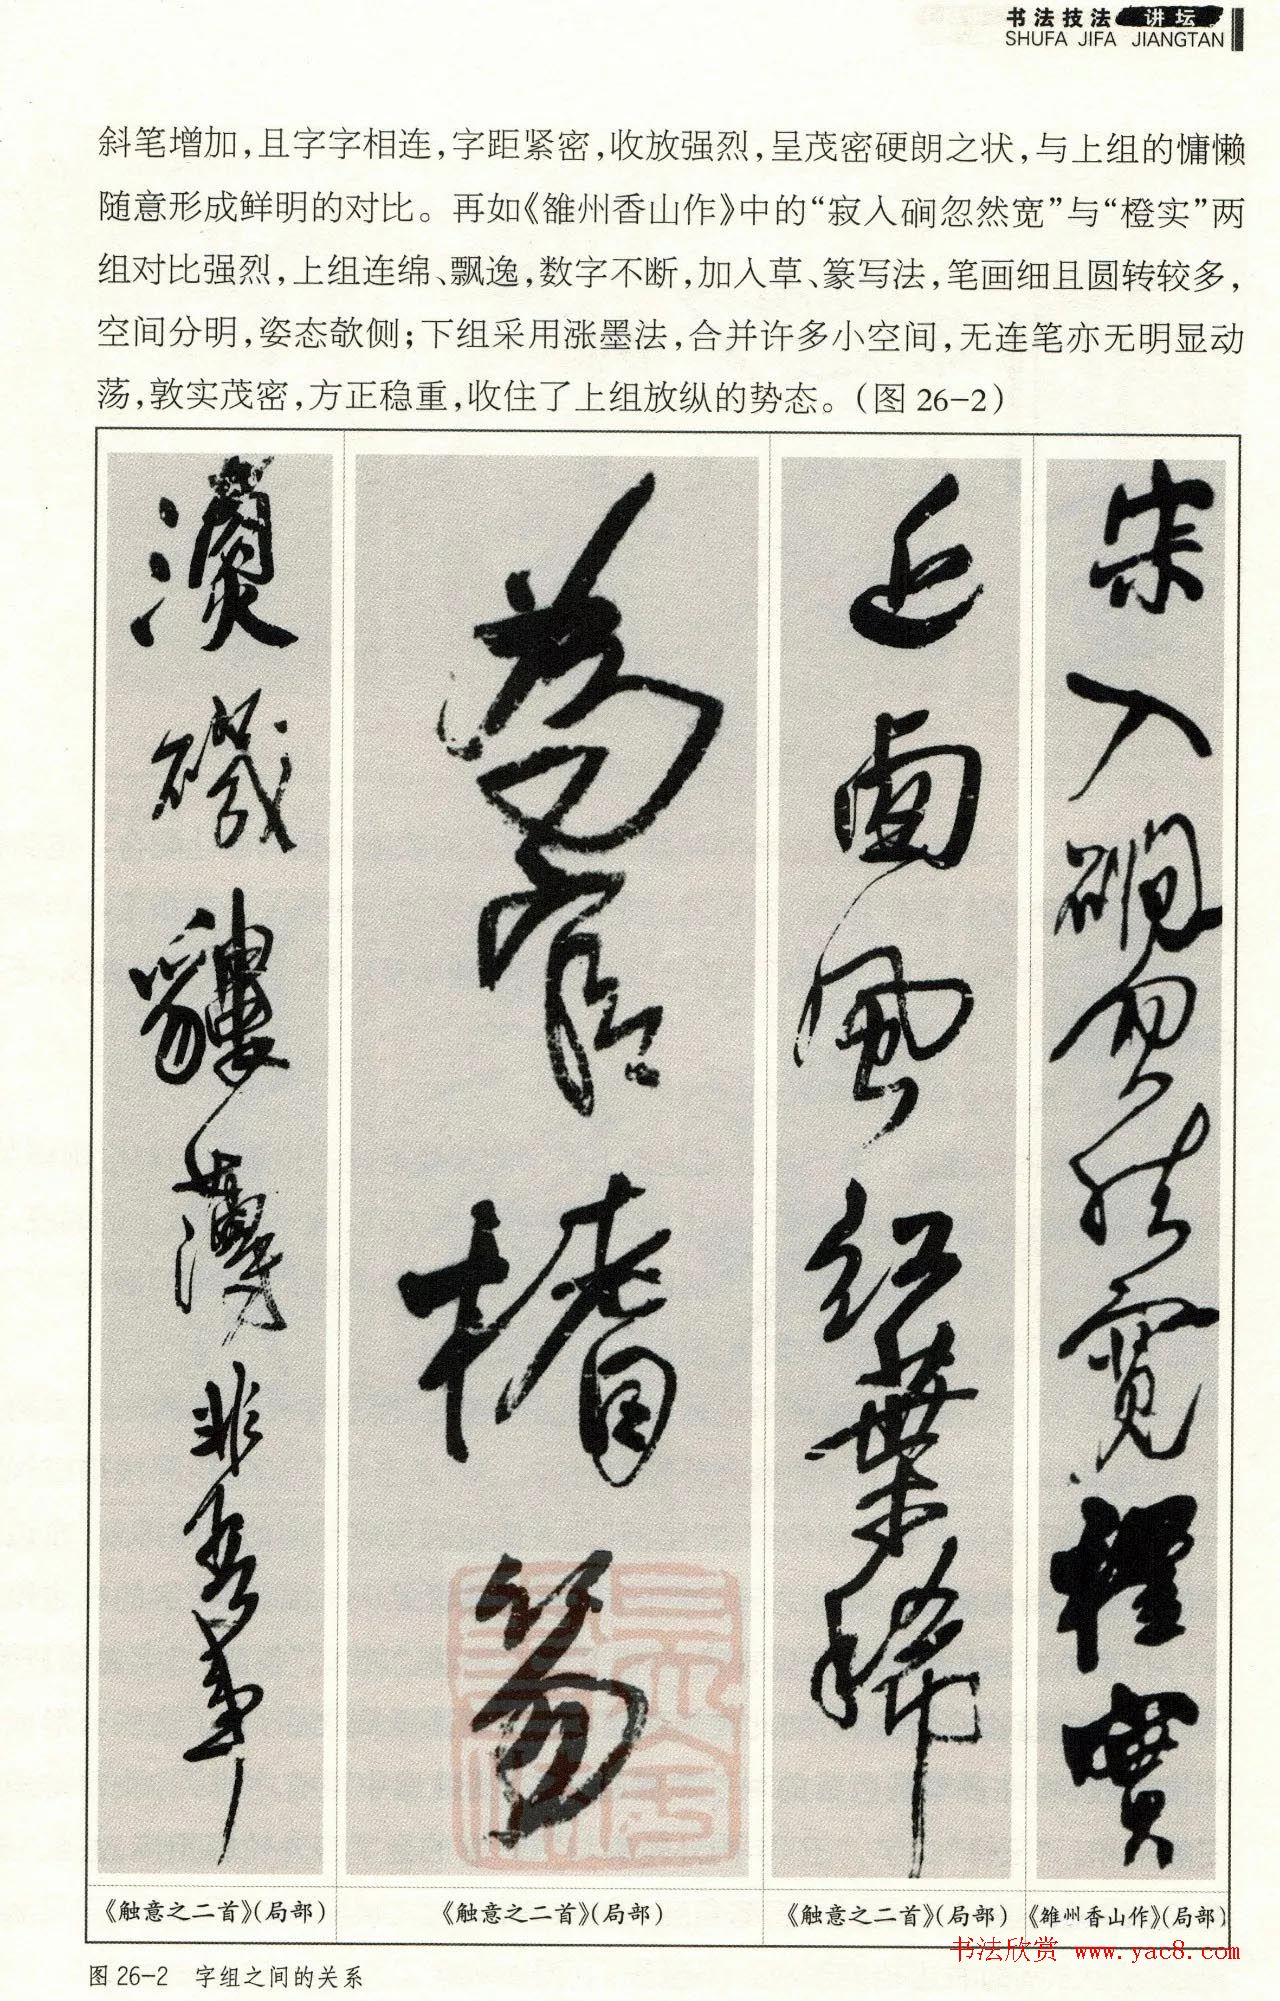 书法技法 讲坛
SHUFA JIFA JIANGTAN
斜笔增加,且字字相连,字距紧密,收放强烈,呈茂密硬朗之状,与上组的慵懒
随意形成鲜明的对比。再如《雒州香山作》中的“寂入硐忽然宽”与“橙实”两
组对比强烈,上组连绵、飘逸,数字不断,加入草、篆写法,笔画细且圆转较多,
空间分明,姿态欹侧;下组采用涨墨法,合并许多小空间,无连笔亦无明显动
荡,敦实茂密,方正稳重,收住了上组放纵的势态。(图 26-2)
入硐忽然寬
實
風紅葉稀
非吾事
《触意之二首》(局部)
《触意之二首》(局部)
《触意之二首》(局部)
《雒州香山作》(局部)
书法欣赏 www.yac8.com
图 26-2 字组之间的关系